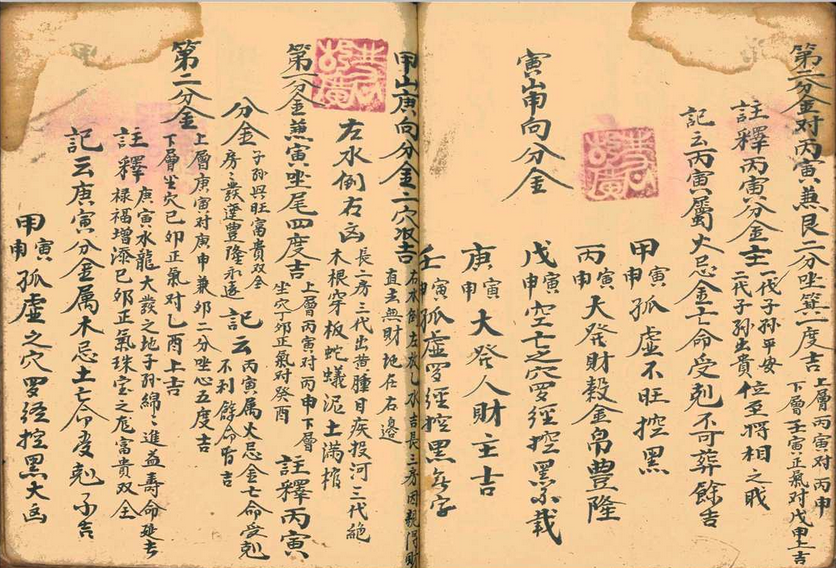 第二分金对丙寅兼艮二分坐箕一度吉
上層丙寅对丙申
下層壬寅正氣对戊申上吉
註釋丙寅分金主
一代子孫平安
二代子孫出貴
位至將相之戝
記云丙寅屬火忌金亡命受剋不可葬餘吉
甲寅申孤虛不旺控黑
丙寅申大發財穀金帛豐隆
寅山申向分金
戊寅申空亡之穴罗經控黑不載
庚寅申大發人財主吉
壬寅申孤虛罗經控黑無字
甲山庚向分金二穴取吉
右水倒左
水吉長三房因親得財
直主無財地在右邊
左水倒右凶
長二房三代出黄腫目疾投河三代絕
木根穿板蛇蟻泥土滿棺
第一分金兼寅坐尾四度吉
上層丙寅对丙申下層
坐穴丁卯正氣对癸酉
註釋丙寅
分金
子孫興旺富貴双全
房房發達豐隆永遠
記云
丙寅属火忌金亡命受剋
不利餘命皆吉
第二分金
上層庚寅对庚申兼卯二分坐心五度吉
下層坐穴已卯正氣对乙酉上吉
註釋
庚寅水龍大發之地子孫綿綿進益壽命延吉
禄褔增添已卯正氣珠宝之龙富貴双全
記云庚寅分金属木忌土亡命受剋不吉
甲寅申孤虛之穴罗經控黑大凶